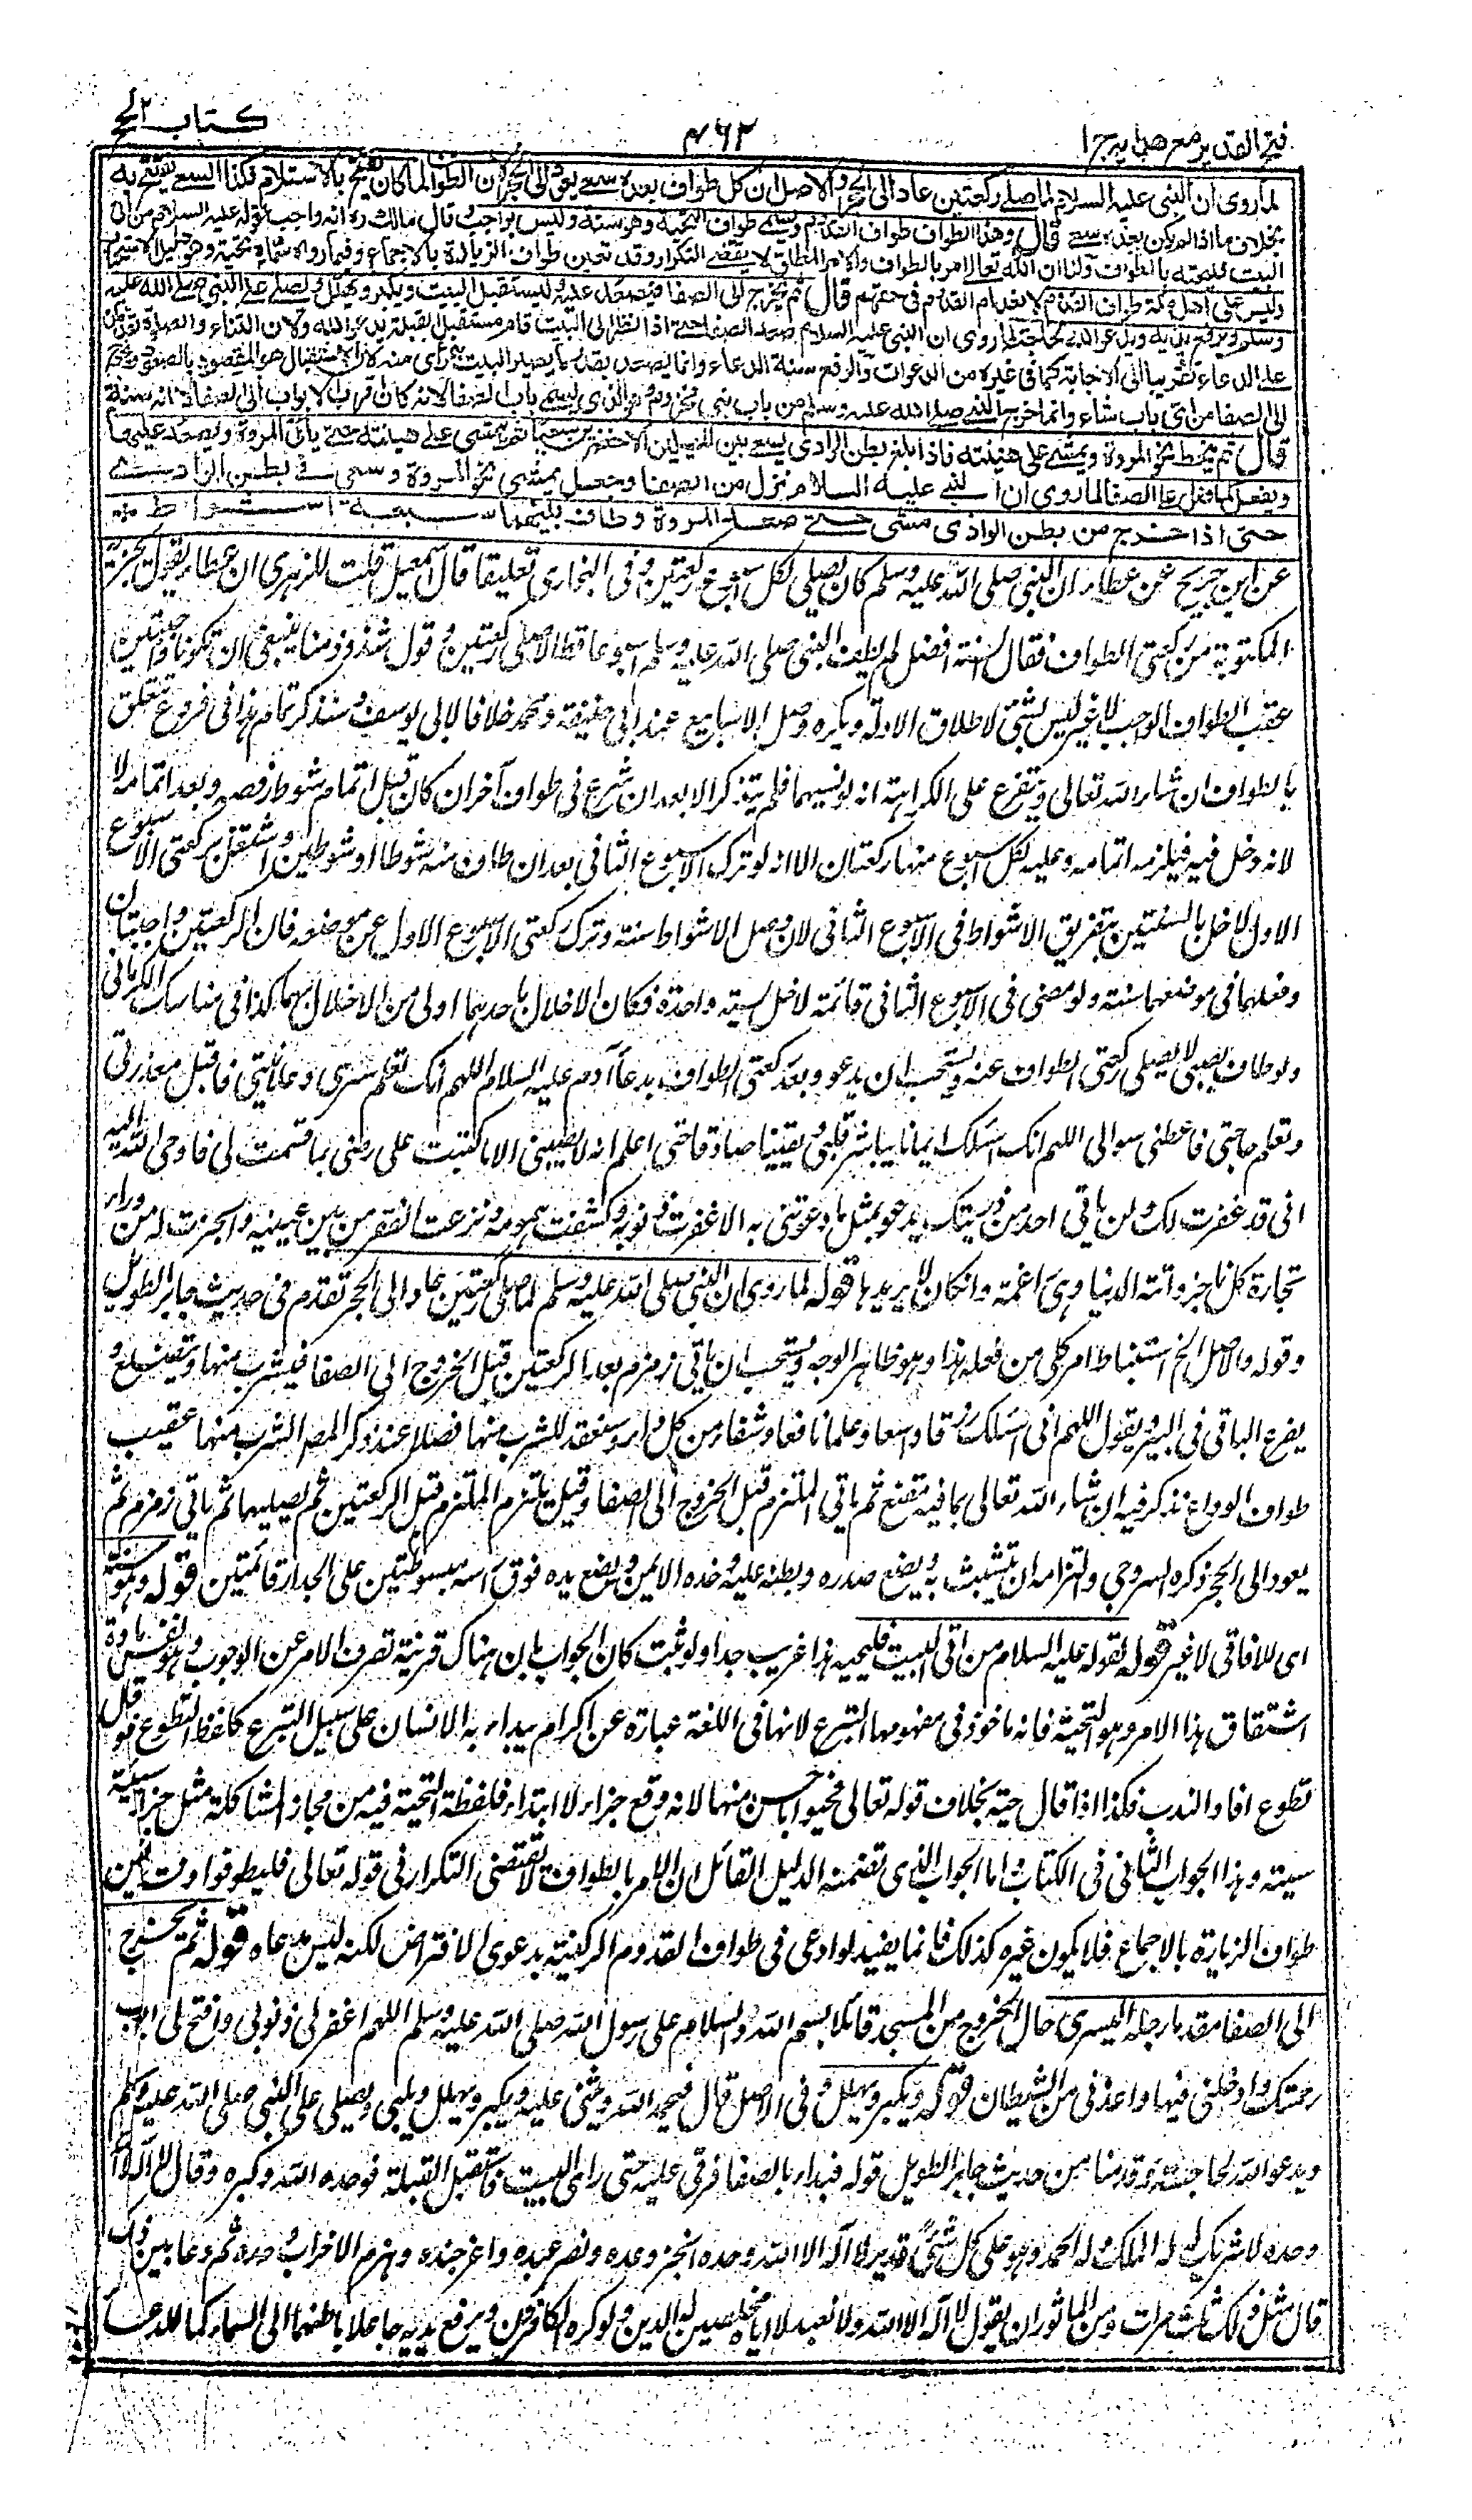 فتح القدير مع هدايه ج ١
٤٦٢
كتاب الحج
لما روى ان النبي عليه السلام لما صلى ركعتين عاد الى الحجر والاصل ان كل طواف بعده سعى يعود الى الحجر لان الطواف لما كان يفتتح بالاستلام فكذا السعى يفتتح به
بخلاف ما اذا لم يكن بعده سعى قال وهذا الطواف طواف القدوم ويسمى طواف التحية وهو سنة وليس بواجب وقال مالك ره انه واجب لقوله عليه السلام من اتى
البيت فليحيه بالطواف ولنا ان الله تعالى امر بالطواف والامر المطلق لا يقتضى التكرار وقد تعين طواف الزيارة بالاجماع وفيما رواه سماه تحية وهو دليل الاستحباب
وليس على اهل مكة طواف القدوم لانعدام القدوم فى حقهم قال ثم يخرج الى الصفا فيصعد عليه ويستقبل البيت ويكبر ويهلل ويصلى على النبي صلى الله عليه
وسلم ويرفع يديه ويدعو الله لحاجته لما روى ان النبي عليه السلام صعد الصفا حتى اذا نظر الى البيت قام مستقبل القبلة يدعو الله ولان الثناء والصلوة يقدمان
على الدعاء تقريبا الى الاجابة كما فى غيره من الدعوات والرفع سنة الدعاء وانما يصعد بقدر ما يصير البيت بمرأى منه لان الاستقبال هو المقصود بالصعود ويخرج
الى الصفا من اى باب شاء وانما خرج النبي صلى الله عليه وسلم من باب بنى مخزوم وهو الذى يسمى باب الصفا لانه كان اقرب الابواب الى الصفا لا انه سنة
قال ثم ينحط نحو المروة ويمشى على هينته فاذا بلغ بطن الوادى يسعى بين الميلين الاخضرين سعيا ثم يمشى على هينته حتى يأتى المروة ويصعد عليها
ويفعل كما فعل على الصفا لما روى ان النبي عليه السلام نزل من الصفا وجعل يمشى نحو المروة وسعى فى بطن الوادى
حتى اذا خرج من بطن الوادى مشى حتى صعد المروة وطاف بينهما سبعة اشواط
عن ابن جريج عن عطاء ان النبي صلى الله عليه وسلم كان يصلى لكل اسبوع ركعتين وفى البخارى تعليقا قال اسمعيل قلت للزهرى ان عطاء يقول تجزئه
المكتوبة من ركعتى الطواف فقال السنة افضل لم يطف النبي صلى الله عليه وسلم اسبوعا قط الا صلى ركعتين وقول شذوذ منا ينبغى ان تكونا واجبتين
عقب الطواف الواجب لا غير ليس بشئ لاطلاق الادلة ويكره وصل الاسابيع عند ابى حنيفة ومحمد خلافا لابى يوسف وسنذكر تمام هذا فى فروع تتعلق
بالطواف ان شاء الله تعالى ويتفرع على الكراهة انه لو نسيهما فلم يتذكر الا بعد ان شرع فى طواف آخر ان كان قبل اتمام شوط رفضه وبعد اتمامه لا
لانه دخل فيه فيلزمه اتمامه وعليه لكل اسبوع منهما ركعتان الا انه لو ترك الاسبوع الثانى بعد ان طاف منه شوطا او شوطين واشتغل بركعتى الاسبوع
الاول لاخل بالسنتين بتفريق الاشواط فى الاسبوع الثانى لان وصل الاشواط سنة وترك ركعتى الاسبوع الاول عن موضعه فان الركعتين واجبتان
وفعلهما فى موضعهما سنة ولو مضى فى الاسبوع الثانى قائمة لاخل بسنة واحدة فكان الاخلال باحديهما اولى من الاخلال بهما كذا فى مناسك الكرمانى
ولو طاف بصبى لا يصلى ركعتى الطواف عنه ويستحب ان يدعو بعد ركعتى الطواف بدعاء آدم عليه السلام اللهم انك تعلم سرى وعلانيتى فاقبل معذرتى
وتعلم حاجتى فاعطنى سوالى اللهم انى اسئلك ايمانا يباشر قلبى ويقينا صادقا حتى اعلم انه لا يصيبنى الا ما كتبت على ورضنى بما قسمت لى فاوحى الله اليه
انى قد غفرت لك ولن يأتى احد من ذريتك يدعو بمثل ما دعوتنى به الا غفرت ذنوبه وكشفت همومه ونزعت الفقر من بين عينيه واتجرت له من وراء
تجارة كل تاجر واتته الدنيا وهى راغمة وان كان لا يريدها قوله لما روى ان النبي صلى الله عليه وسلم لما صلى ركعتين عاد الى الحجر تقدم فى حديث جابر الطويل
وقوله والاصل الخ استنباط امر كلى من فعله هذا وهو ظاهر الوجه ويستحب ان يأتى زمزم بعد الركعتين قبل الخروج الى الصفا فيشرب منها ويتضلع و
يفرغ الباقى فى البير ويقول اللهم انى اسئلك رزقا واسعا وعلما نافعا وشفاء من كل داء وسنعقد للشرب منها فصلا عند ذكر المصـ الشرب منها عقيب
طواف الوداع نذكر فيه ان شاء الله تعالى ما فيه مقنع ثم يأتى الملتزم قبل الخروج الى الصفا وقيل يلتزم الملتزم قبل الركعتين ثم يصليهما ثم يأتى زمزم ثم
يعود الى الحجر ذكره السروجى والتزامه ان يتشبث به ويضع صدره وبطنه عليه وخده الايمن ويضع يده فوق رأسه مبسوطتين على الجدار قائمتين قوله وهو سنة
اى للافاقى لا غير قوله لقوله عليه السلام من اتى البيت فليحيه هذا غريب جدا ولو ثبت كان الجواب بان هناك قرينة تصرف الامر عن الوجوب وهو نفس مادة
اشتقاق هذا الامر وهو التحية فانه ماخوذ فى مفهومها التبرع لانها فى اللغة عبارة عن اكرام يبداء به الانسان على سبيل التبرع كلفظ التطوع فلو قال
تطوع افاد الندب فكذا اذا قال حيه بخلاف قوله تعالى فحيوا باحسن منها لانه وقع جزاء لا ابتداء فلفظة التحية فيه من مجاز المشاكلة مثل جزاء سيئة
سيئة وهذا الجواب الثانى فى الكتاب واما الجواب الذى تضمنه الدليل القائل ان الامر بالطواف لا يقتضى التكرار فى قوله تعالى فليطوفوا وقد تعين
طواف الزيارة بالاجماع فلا يكون غيره كذلك فانما يفيد لو ادعى فى طواف القدوم الركنية بدعوى الافتراض لكنه ليس مدعاه قوله ثم يخرج
الى الصفا مقدما رجله اليسرى حال الخروج من المسجد قائلا بسم الله والسلام على رسول الله صلى الله عليه وسلم اللهم اغفر لى ذنوبى وافتح لى ابواب
رحمتك وادخلنى فيها واعذنى من الشيطان قوله ويكبر ويهلل و فى الاصل قال فيحمد الله ويثنى عليه ويكبر ويهلل ويلبى ويصلى على النبي صلى الله عليه وسلم
ويدعو الله لحاجته وقدمنا من حديث جابر الطويل قوله فبداء بالصفا فرقى عليه حتى راى البيت فاستقبل القبلة فوحد الله وكبره وقال لا اله الا الله
وحده لا شريك له له الملك وله الحمد وهو على كل شئ قدير لا اله الا الله وحده انجز وعده ونصر عبده واعز جنده وهزم الاحزاب وحده ثم دعا بين ذلك
قال مثل ذلك ثلث مرات ومن الماثور ان يقول لا اله الا الله ولا نعبد الا اياه مخلصين له الدين ولو كره الكافرون ويرفع يديه جاعلا باطنهما الى السماء كما للدعاء